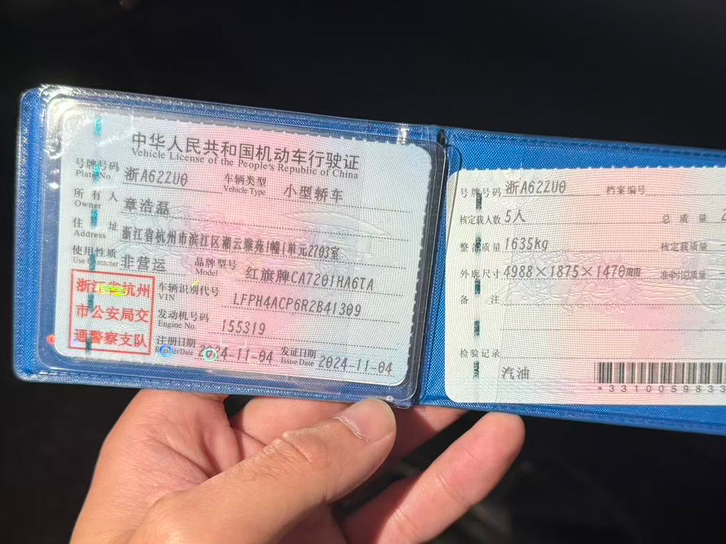 中华人民共和国机动车行驶证
Vehicle License of the People's Republic of China
号牌号码 浙A622U0 车辆类型 小型轿车
Plate No. Vehicle Type
所有人 章浩磊
Owner
住址 浙江省杭州市滨江区湘云雅苑1幢1单元2703室
Address
使用性质 非营运 品牌型号 红旗牌CA7201HA6TA
Use Character Model
浙江省杭州
市公安局交
通警察支队
车辆识别代号 LFPH4ACP6R2B41309
VIN
发动机号码 155319
Engine No.
注册日期 2024-11-04 发证日期 2024-11-04
Register Date Issue Date
号牌号码 浙A622U0 档案编号
核定载人数 5人 总质量
整备质量 1635kg 核定载质量
外廓尺寸 4988×1875×1470mm 准牵引总质量
备注
检验记录
汽油
*331005983